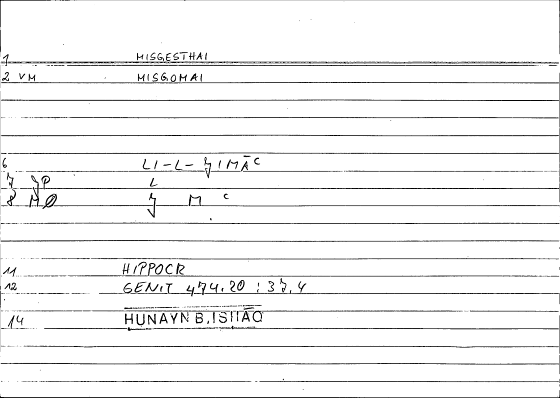 1 MISGESTHAI
2 VM MISGOMAI
6 LI-L-ȜIMĀC
7 ȜP L
8 MØ Ȝ M C
11 HIPPOCR
12 GENIT 474.20 : 37,4
14 HUNAYN B.ISḤĀQ